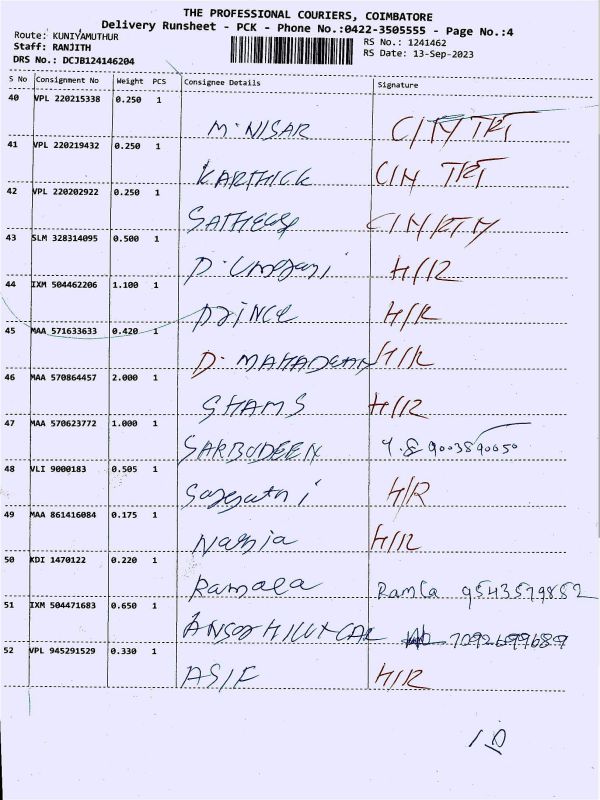 THE PROFESSIONAL COURIERS, COIMBATORE
Delivery Runsheet - PCK - Phone No.:0422-3505555 - Page No.:4
Route: KUNIYAMUTHUR
RS No.: 1241462
Staff: RANJITH
RS Date: 13-Sep-2023
DRS No.: DCJB124146204
S No Consignment No Weight PCS Consignee Details Signature
40 VPL 220215338 0.250 1
M. NISAR
41 VPL 220219432 0.250 1
KARTHICK
42 VPL 220202922 0.250 1
43 SLM 328314095 0.500 1
H/R
44 IXM 504462206 1.100 1
PRINCE H/R
45 MAA 571633633 0.420 1
D. MAHADEVAN H/R
46 MAA 570864457 2.000 1
SHAMS H/R
47 MAA 570623772 1.000 1
SARBUDEEN 9003890050
48 VLI 9000183 0.505 1
H/R
49 MAA 861416084 0.175 1
Nazia H/R
50 KDI 1470122 0.220 1
Ramala Ramla 9543579852
51 IXM 504471683 0.650 1
7092699689
52 VPL 945291529 0.330 1
ASIF H/R